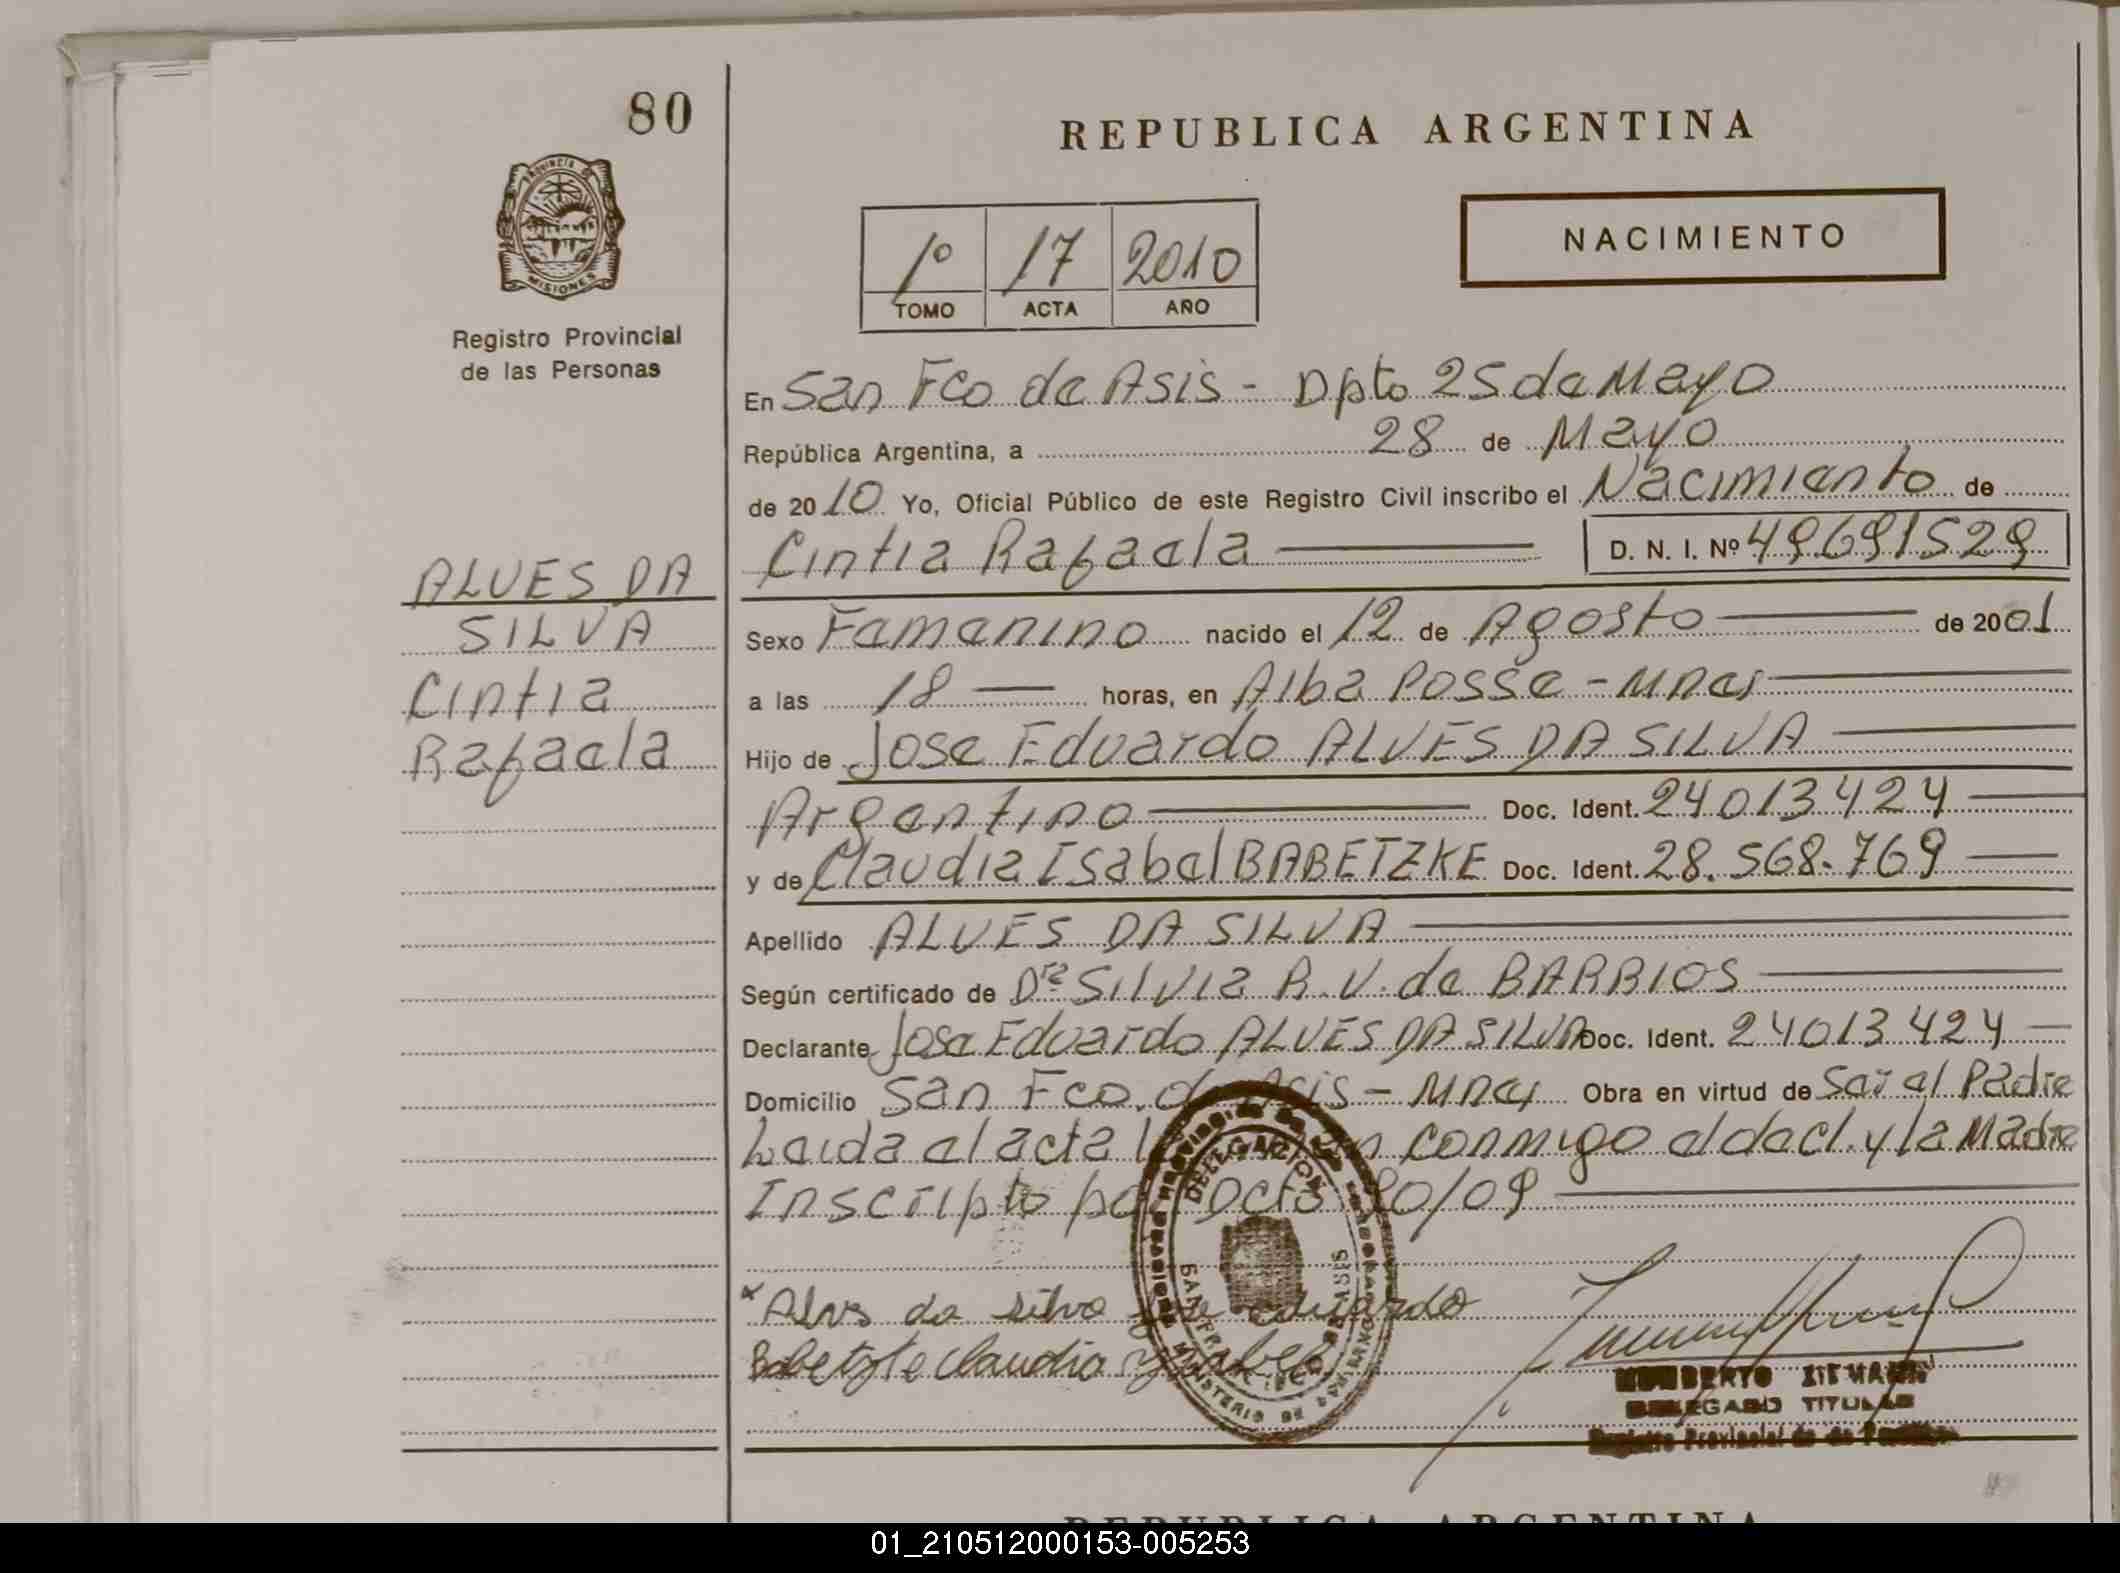 80
REPUBLICA ARGENTINA
PROVINCIA DE
MISIONES
Registro Provincial
de las Personas
1º 17 2010
TOMO ACTA AÑO
NACIMIENTO
En San Fco de Asis - Dpto 25 de Mayo
República Argentina, a 28 de Mayo
de 2010 Yo, Oficial Público de este Registro Civil inscribo el Nacimiento de
Cintia Rafaela D. N. I. Nº 49691529
ALVES DA
SILVA
Cintia
Rafaela
Sexo Femenino nacido el 12 de Agosto de 2001
a las 18 horas, en Alba Posse - Mnes
Hijo de Jose Eduardo ALVES DA SILVA
Argentino Doc. Ident. 24013424
y de Claudia Isabel BABETZKE Doc. Ident. 28.568.769
Apellido ALVES DA SILVA
Según certificado de Dra Silvia R.V. de BARRIOS
Declarante Jose Eduardo ALVES DA SILVA Doc. Ident. 24013424
Domicilio San Fco. de Asis - Mnes Obra en virtud de Ser el Padre
Leida el acta conmigo el decl. y la Madre
Inscripto por Dcto 90/09
DELEGACION
SAN FRANCISCO DE ASIS
MINISTERIO DE GOBIERNO
x Alves da silva Jose eduardo
Babetzke Claudia Ysabel
HUMBERTO
DELEGADO TITULAR
Registro Provincial de
REPUBLICA ARGENTINA
01_210512000153-005253